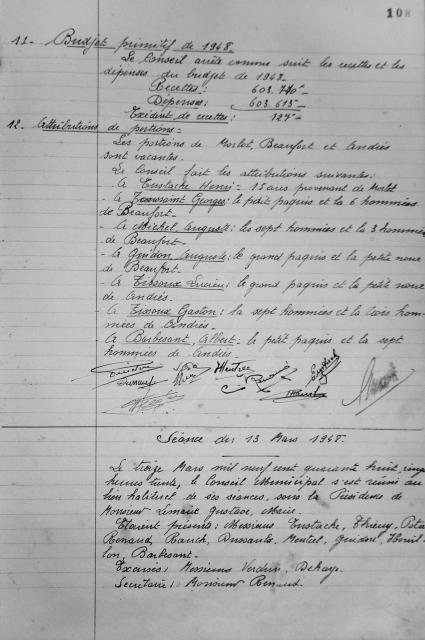 108
11- Budget primitif de 1948-
Le Conseil arrête comme suit les recettes et les
dépenses du budget de 1948-
Recettes: 603.740-
Dépenses: 603.615-
Excédent de recettes: 125-
12- Attributions de portions-
Les portions de Morlot, Beaufort et Andrés
sont vacantes.
Le Conseil fait les attributions suivantes:
- à Eustache Henri - 15 ares provenant de Morlot
- à Toussaint Georges: le petit paquis et la 6 hommées
de Beaufort-
- à Michel Auguste: les sept hommées et le 3 hommées
de Beaufort-
- à Guidon Auguste: le grand paquis et la petite noue
de Beaufort.
- à Tissoux Lucien: le grand paquis et la petite noue
de Andrés.
- à Tissoux Gaston: la sept hommées et la trois hom-
mées de Andrés-
à Barbesant Albert: le petit paquis et la sept
hommées de Andrés-
Séance du 13 Mars 1948-
Le treize Mars mil neuf cent quarante huit, cinq
heures trente, le Conseil Municipal s'est réuni au
lieu habituel de ses séances, sous la Présidence de
Monsieur Lemaire Gustave, Maire.
Etaient présents: Messieurs Eustache, Thiery,
Renaud, Rauch, Dussaute,
lon, Barbesant-
Excusés: Messieurs Verdun, Dehaye.
Secrétaire: Monsieur Renaud.